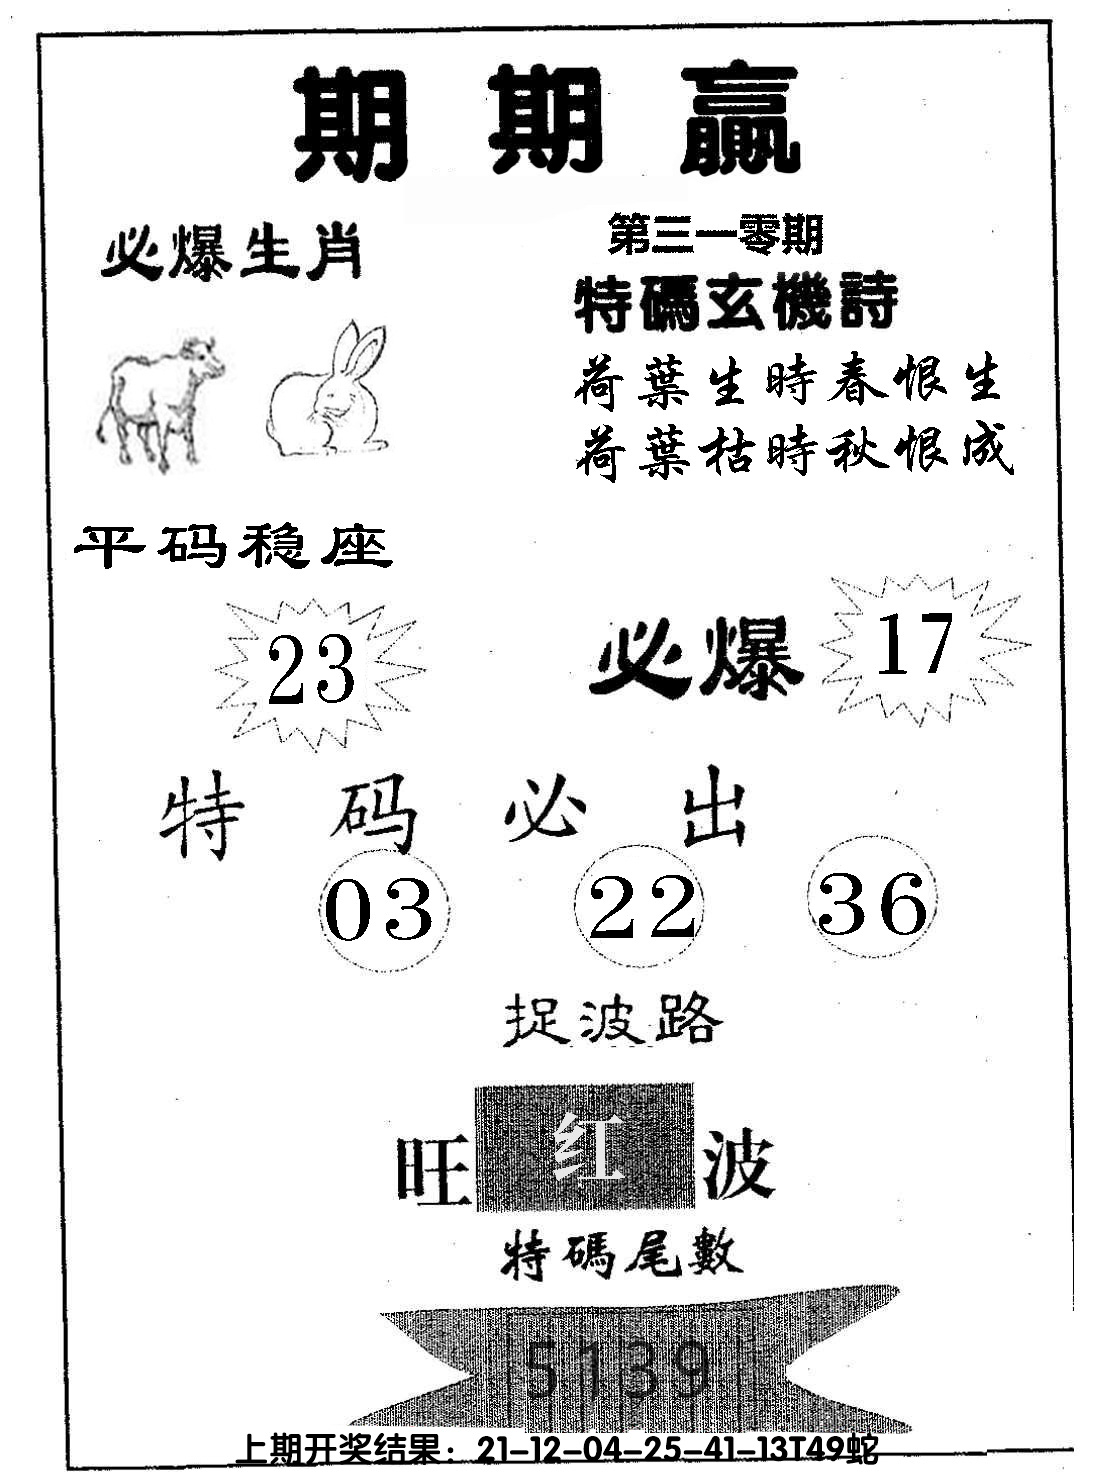 期期赢
必爆生肖
第三一零期
特碼玄機詩
荷葉生時春恨生
荷葉枯時秋恨成
平码稳座
23
必爆
17
特码必出
03 22 36
捉波路
旺红波
特碼尾數
5139
上期开奖结果：21-12-04-25-41-13T49蛇